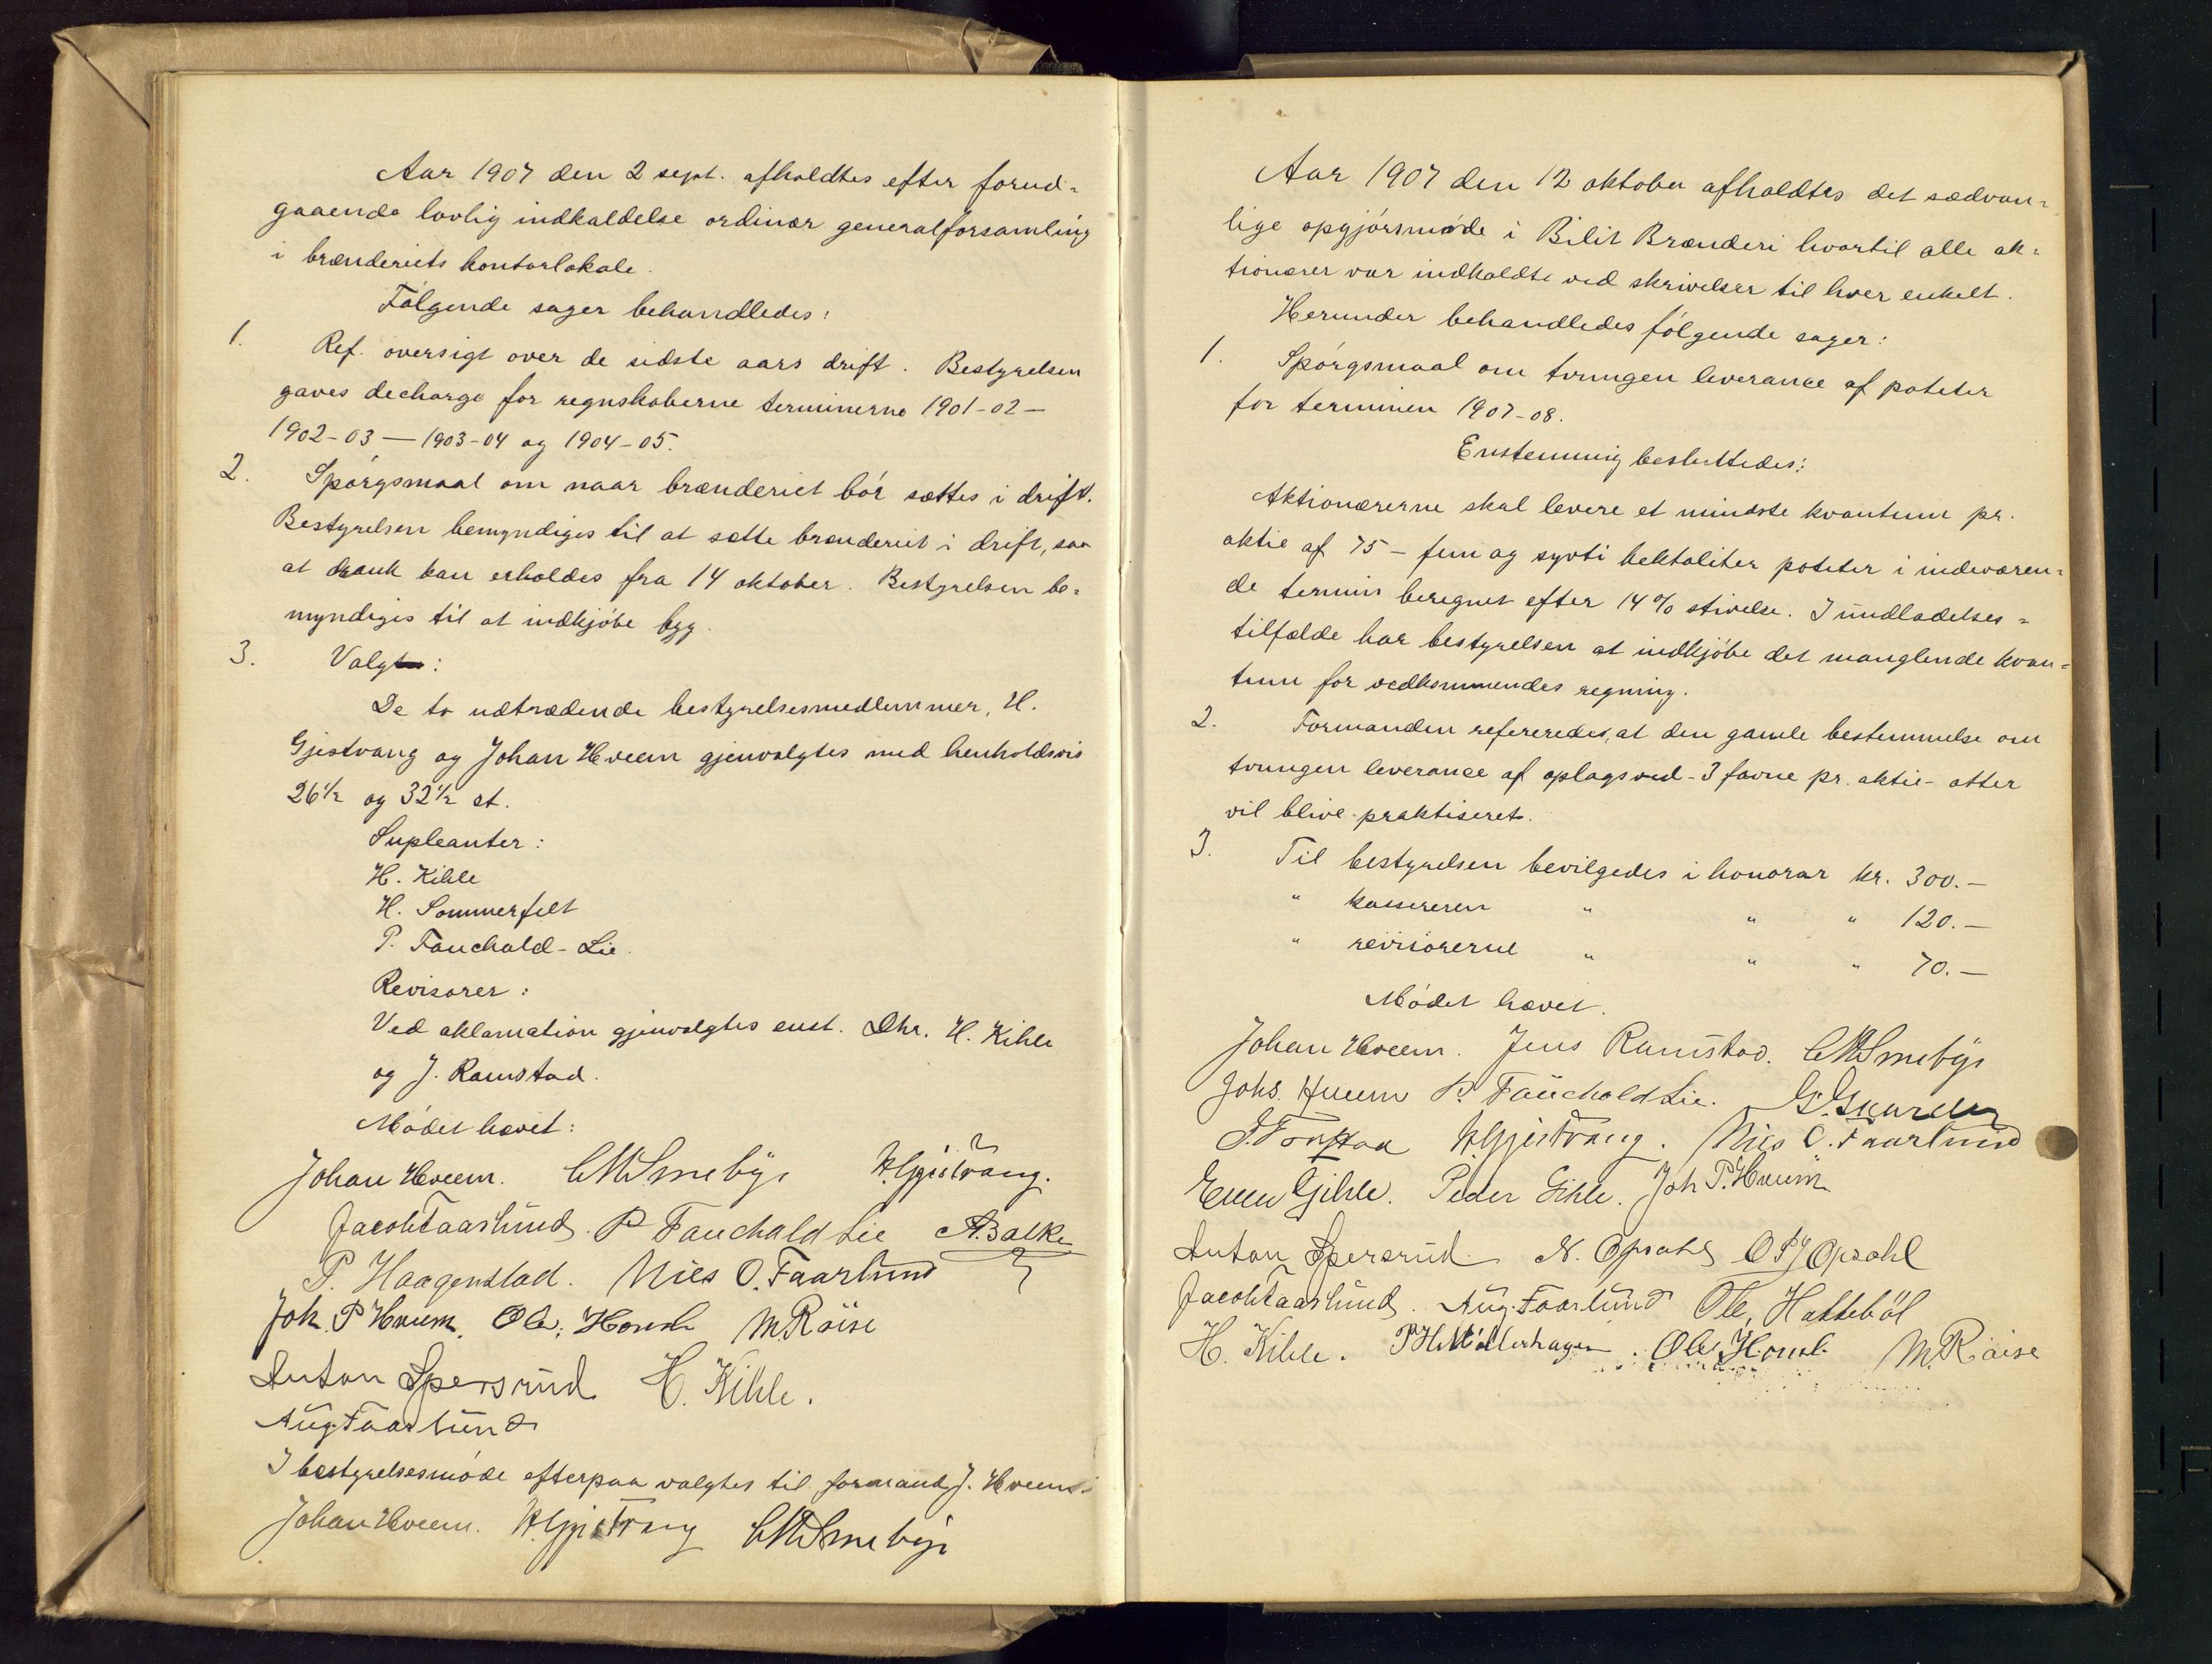 Aar 1907 den 2 sept. afholdtes efter forud-
gaaende lovlig indkaldelse ordinær generalforsamling
i brænderiets kontorlokale.
Følgende sager behandledes:
1. Ref. oversigt over de sidste aars drift. Bestyrelsen
gaves decharge for regnskaberne terminerne 1901-02 –
1902-03 – 1903-04 og 1904-05.
2. Spørgsmaal om naar brænderiet bør sættes i drift.
Bestyrelsen bemyndiges til at sætte brænderiet i drift, saa
at drank kan erholdes fra 14 oktober. Bestyrelsen be-
myndiges til at indkjøbe byg.
3. Valg:
De to udtrædende bestyrelsesmedlemmer, H.
Gjestvang og Johan Hveem gjenvalgtes med henholdsvis
26½ og 32½ st.
Supleanter:
H. Kihle
H. Sommerfelt
P. Fauchald-Lie.
Revisorer:
Ved aklamation gjenvalgtes enst. Dhr. H. Kihle
og J. Ramstad.
Mødet hævet:
Johan Hveem. CMSmeby H Gjestvang.
Jacob Faarlund. P Fauchald Lie A. Balke
P. Haagenstad. Nils O. Faarlund
Joh. P Hveem. Ole. M Røise
Anton Spersrud H. Kihle.
Aug. Faarlund
I bestyrelsesmøde efterpaa valgtes til formand J. Hveem.
Johan Hveem. H Gjestvang CMSmeby
Aar 1907 den 12 oktober afholdtes det sædvan-
lige opgjørsmøde i Bilit Brænderi hvortil alle ak-
tionærer var indkaldte ved skrivelser til hver enkelt.
Herunder behandledes følgende sager:
1. Spørgsmaal om tvungen leverance af poteter
for terminen 1907-08.
Enstemmig besluttedes:
Aktionærerne skal levere et mindste kvantum pr.
aktie af 75 – fem og sytti hektoliter poteter i indeværen-
de termin beregnet efter 14% stivelse. I undladelses-
tilfælde har bestyrelsen at indkjøbe det manglende kvan-
tum for vedkommendes regning.
2. Formanden refereredes, at den gamle bestemmelse om
tvungen leverance af oplagsved – 3 favne pr. aktie – atter
vil blive praktiseret.
3. Til bestyrelsen bevilgedes i honorar kr. 300.–
" kassereren " " " 120.–
" revisorerne " " " 70.–
Mødet hævet.
Johan Hveem. Jens Ramstad. CMSmeby
Johs. Hveem P. Fauchald Lie.
H Gjestvang. Nils O. Faarlund
Even Gihle. Peder Gihle. Joh P. Hveem
Anton Spersrud N. Opsahl O P Opsahl
Jacob Faarlund. Aug. Faarlund Ole, Hattebøl
H. Kihle. P H Møllerhagen. Ole M. Røise